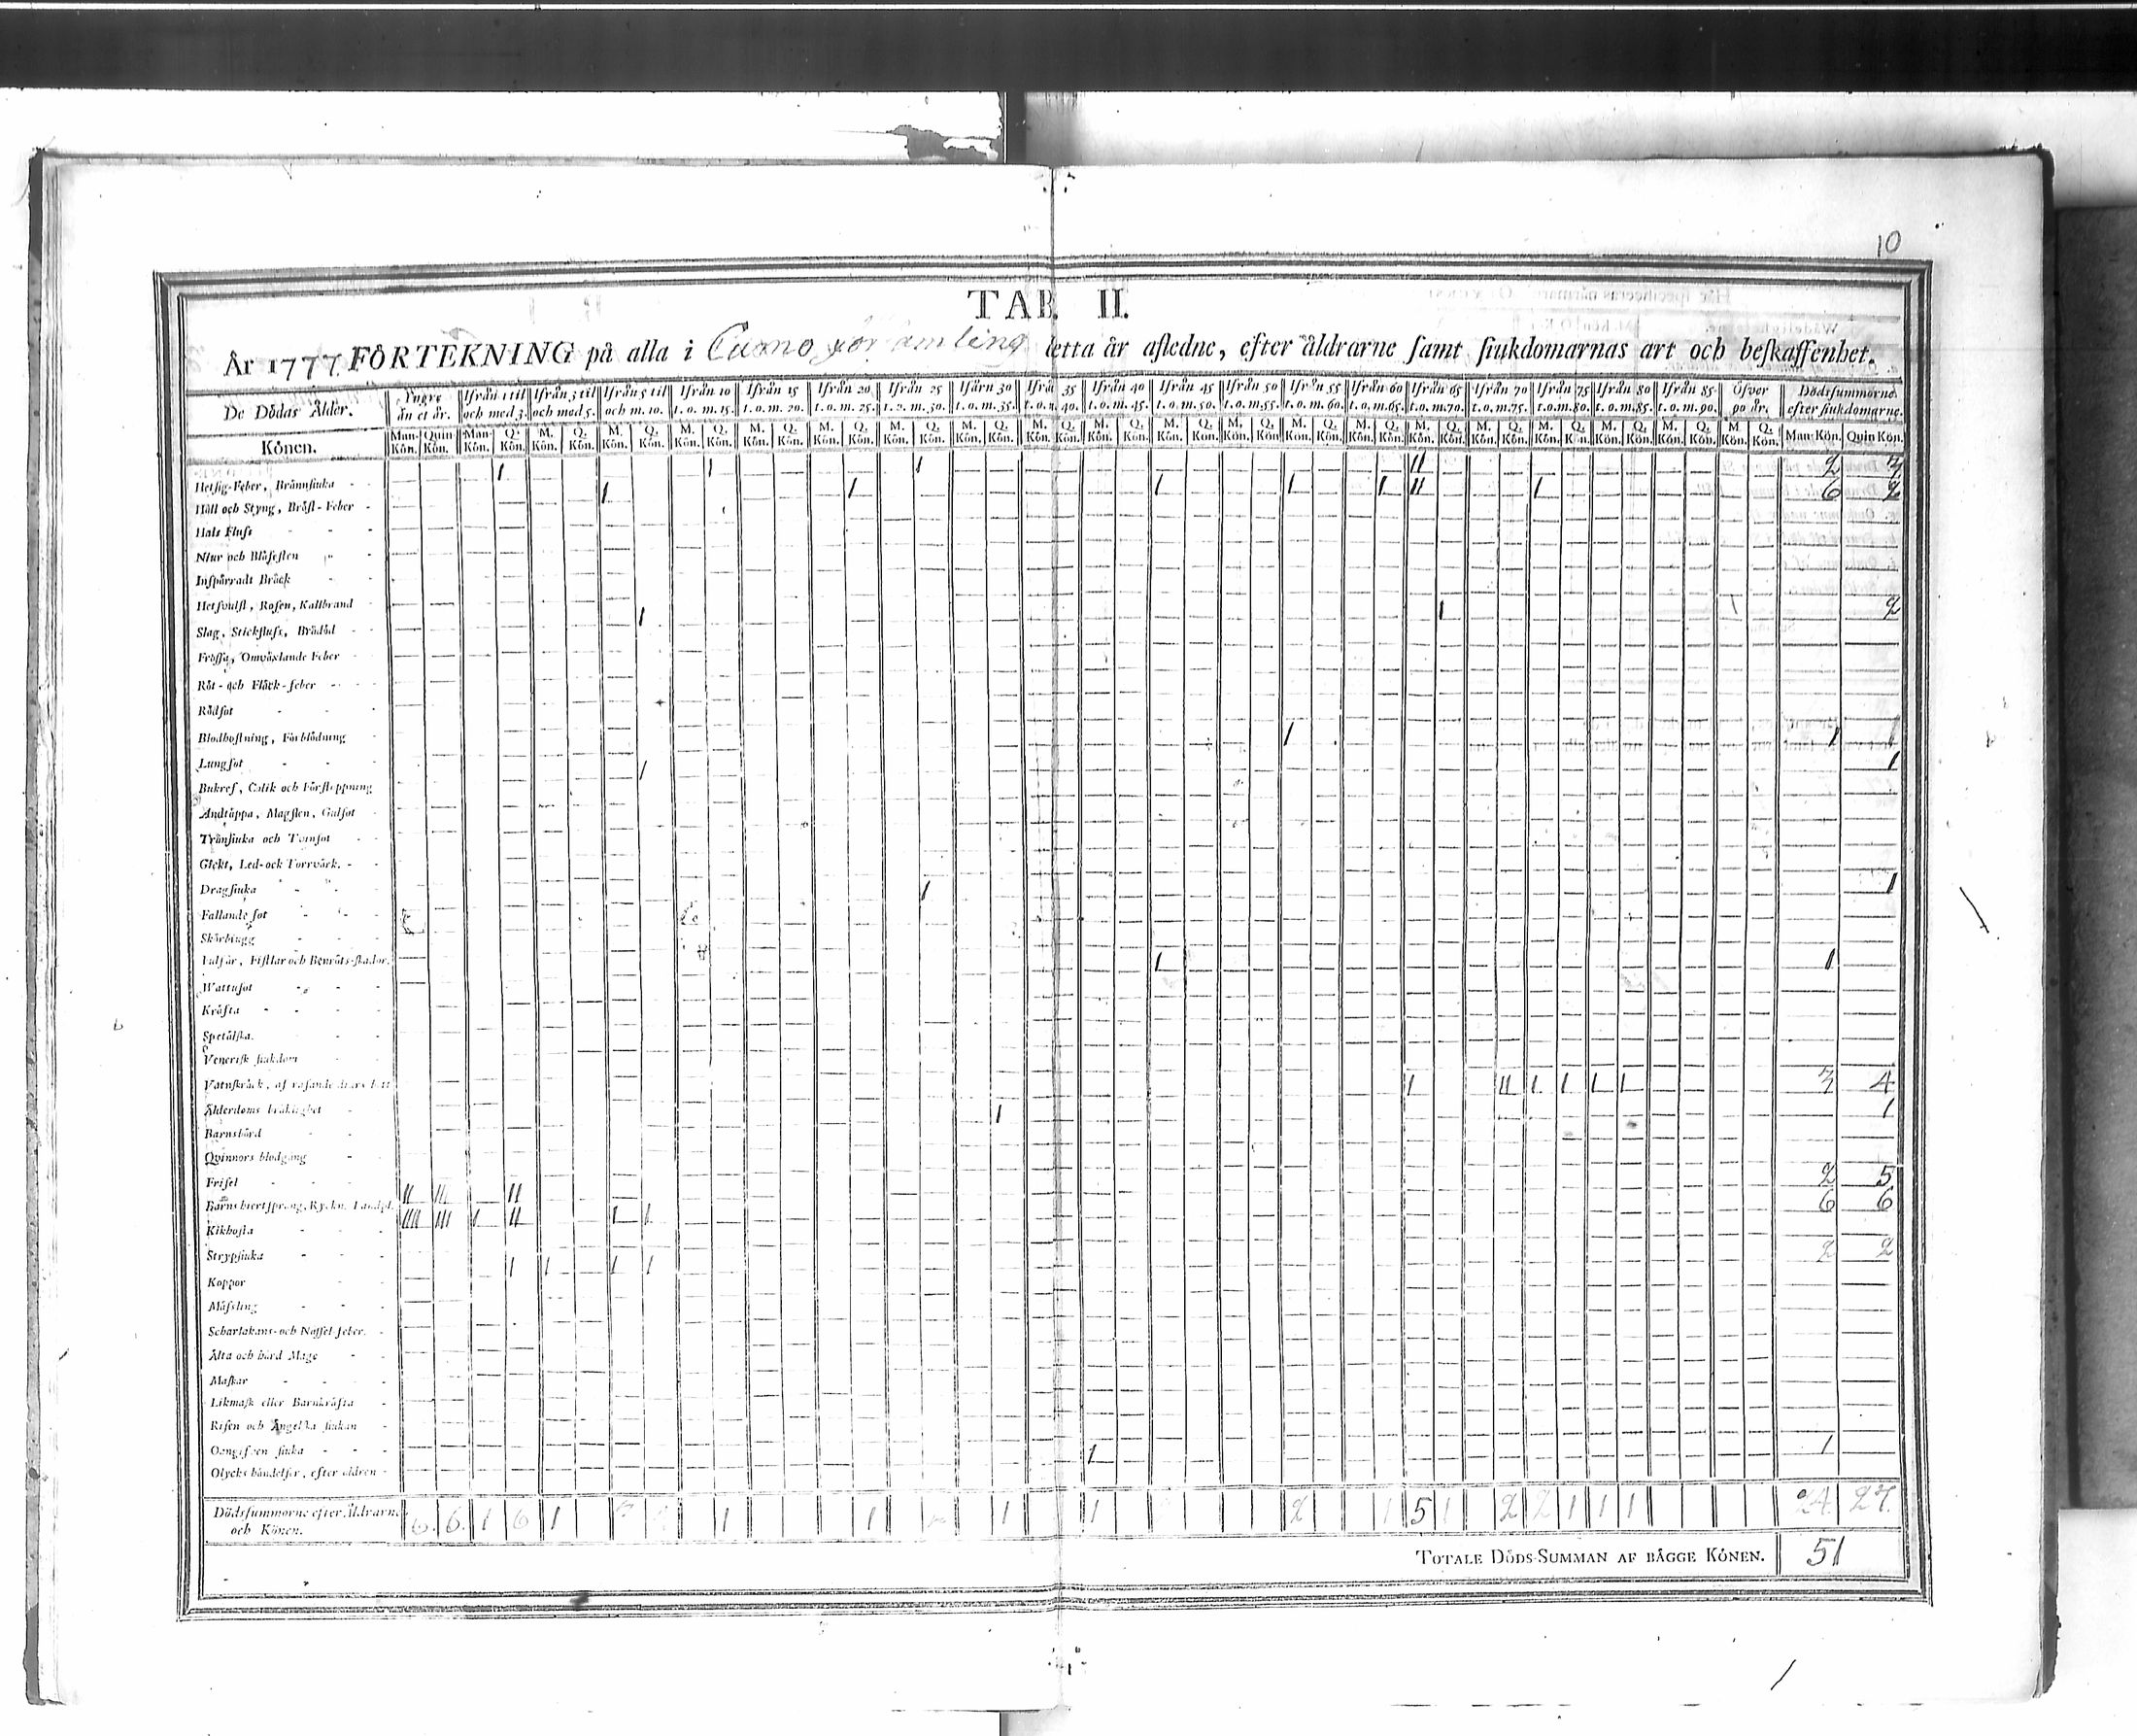 10
TAB. II.
År 1777 FÖRTEKNING på alla i Cumo församling detta år afledne, efter åldrarne samt siukdomarnas art och beskaffenhet.
De Dödas Ålder. Yngre än et år. Ifrån 1 til och med 3. Ifrån 3 til och med 5. Ifrån 5 til och m. 10. Ifrån 10 t. o. m. 15. Ifrån 15 t. o. m. 20. Ifrån 20 t. o. m. 25. Ifrån 25 t. o. m. 30. Ifårn 30 t. o. m. 35. Ifrån 35 t. o. m. 40. Ifrån 40 t. o. m. 45. Ifrån 45 t. o. m. 50. Ifrån 50 t. o. m. 55. Ifrån 55 t. o. m. 60. Ifrån 60 t. o. m. 65. Ifrån 65 t. o. m. 70. Ifrån 70 t. o. m. 75. Ifrån 75 t. o. m. 80. Ifrån 80 t. o. m. 85. Ifrån 85 t. o. m. 90. Öfver 90 år. Dödssummorne efter siukdomarne.
Könen. Man-Kön. Quin Kön. Man-Kön. Q. Kön. M. Kön. Q. Kön. M. Kön. Q. Kön. M. Kön. Q. Kön. M. Kön. Q. Kön. M. Kön. Q. Kön. M. Kön. Q. Kön. M. Kön. Q. Kön. M. Kön. Q. Kön. M. Kön. Q. Kön. M. Kön. Q. Kön. M. Kön. Q. Kön. M. Kön. Q. Kön. M. Kön. Q. Kön. M. Kön. Q. Kön. M. Kön. Q. Kön. M. Kön. Q. Kön. M. Kön. Q. Kön. M. Kön. Q. Kön. M. Kön. Q. Kön. Man Kön. Quin Kön.
Hetsig-Feber, Brännsiuka 1 1 1 11 2 3
Håll och Styng, Bröst-Feber 1 1 1 1 1 11 1 6 2
Hals Fluss
Niur och Blåsesten
Inspärradt Bråck
Hetsvulst, Rosen, Kallbrand
Slag, Stickfluss, Brådöd 1 1 2
Frossa, Omväxlande Feber
Röt- och Fläck-feber
Rödsot
Blodhostning, Förblödning
Lungsot 1 1 1
Bukref, Colik och Förstoppning 1 1
Andtäppa, Magsten, Gulsot
Trånsiuka och Tvinsot
Gickt, Led- ock Torrvärk.
Dragsiuka 1 1
Fallande sot
Skörbiugg
Bulsår, Fistlar och Benröts-skador.
Wattusot 1 1
Kräfta
Spetälska.
Venerisk siukdom
Vatuskräck, af rasande diurs bett
Ålderdoms bräklighet 1 11 1 1 1 1 3 4
Barnsbörd 1 1
Qvinnors blodgång
Frisel
Barns hiertsprång, Ryckn. Landpl. 11 111 11 2 5
Kikhosta 1111 111 1 11 1 1 6 6
Strypsiuka
Koppor 1 1 1 1 2 2
Mässling
Scharlakans- och Nässel feber.
Älta och hård Mage
Maskar
Likmask eller Barnkräfta
Risen och Ängelska siukan
Oangifven siuka
Olycks händelser, efter aldren 1 1
Dödssummorne efter Åldrarne och Könen. 6. 6. 1 6 1 1 1 1 1 2 1 5 1 2 2 1 1 1 24. 27.
TOTALE DÖDS-SUMMAN AF BÄGGE KÖNEN. 51